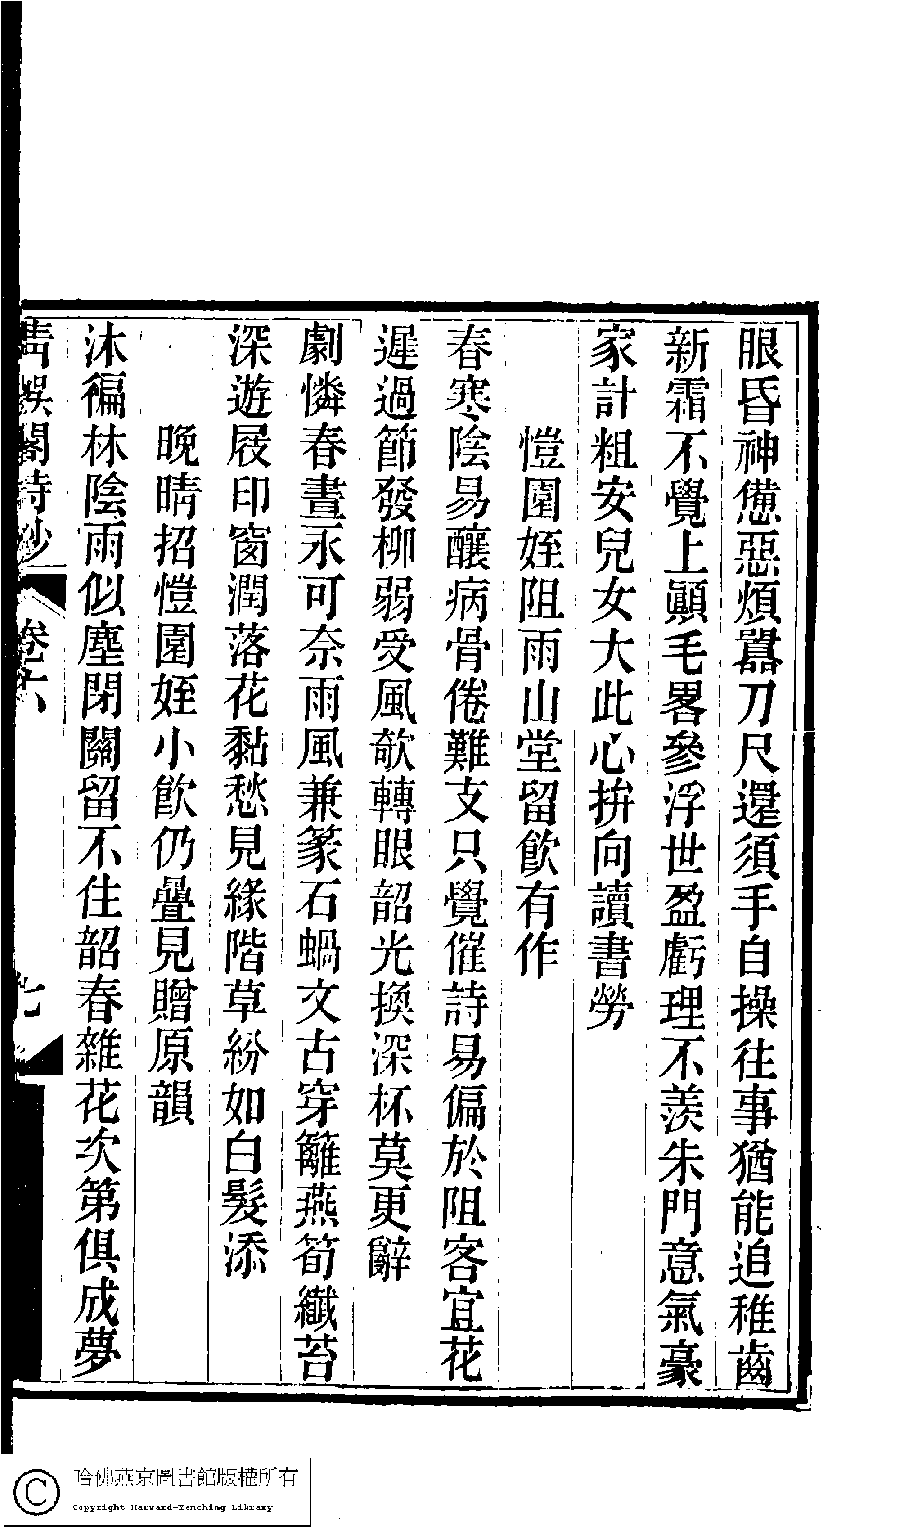 眼昏神憊惡煩囂刀尺還須手自操往事猶能追稚齒
新霜不覺上顚毛畧參浮世盈虧理不羨朱門意氣豪
家計粗安兒女大此心拚向讀書勞
愷園姪阻雨山堂留飮有作
春寒陰易釀病骨倦難支只覺催詩易偏於阻客宜花
遲過節發柳弱受風欹轉眼韶光換深杯莫更辭
劇憐春晝永可奈雨風兼篆石蝸文古穿籬燕筍纖苔
深遊屐印窗潤落花黏愁見緣階草紛如白髮添
晚晴招愷園姪小飮仍疊見贈原韻
沐徧林陰雨似塵閉關留不住韶春雜花次第俱成夢
閣詩鈔
卷六
哈佛燕京圖書館版權所有
Copyright Harvard-Yenching Library